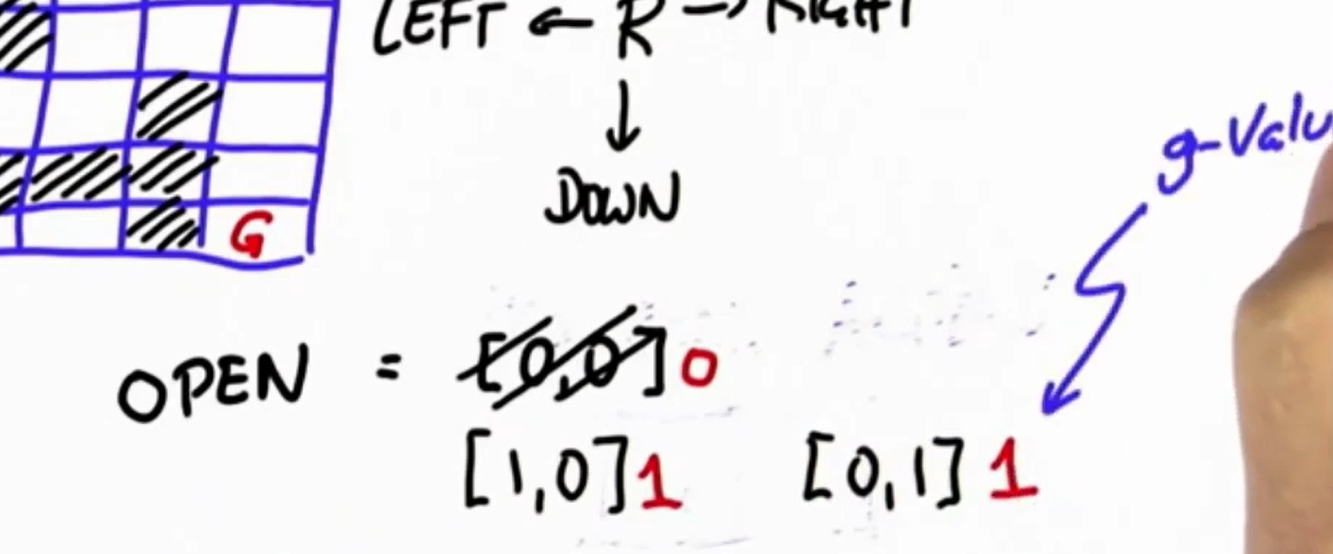 LEFT ← R → RIGHT
↓
DOWN
g-Valu
G
OPEN = [0,0] 0
[1,0] 1 [0,1] 1